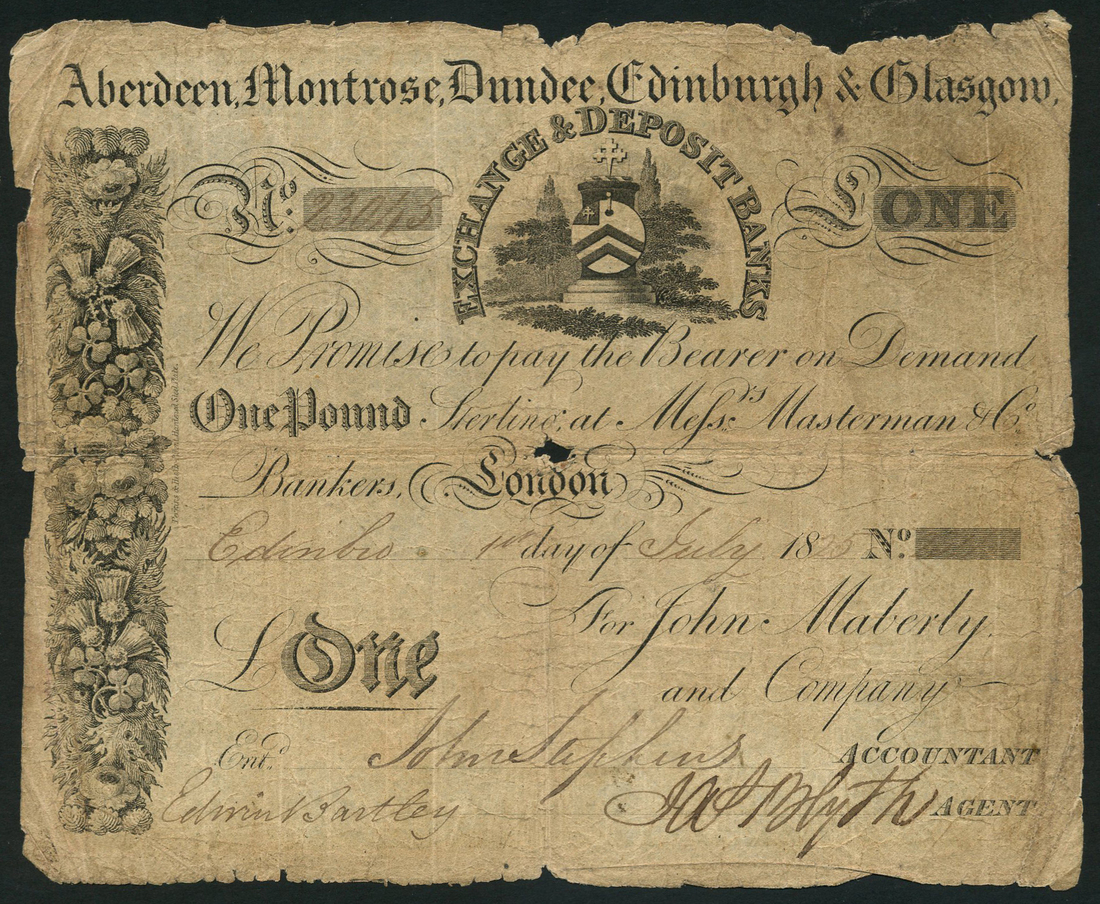 Aberdeen, Montrose, Dundee, Edinburgh & Glasgow,
EXCHANGE & DEPOSIT BANKS
No.
£ ONE
We Promise to pay the Bearer on Demand
One Pound Sterling, at Messrs. Masterman & Co.
Bankers, London
Edinbro 1st day of July 1825 No.
£ One
For John Maberly
and Company
Entd. John Stephens ACCOUNTANT
Edwin Bartley Blyth AGENT